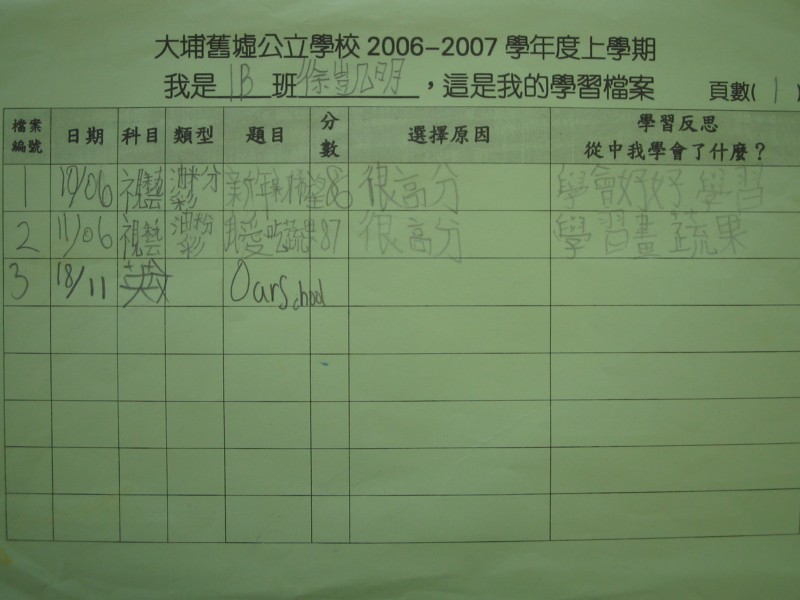 大埔舊墟公立學校 2006-2007 學年度上學期
我是 1B 班 徐凱明，這是我的學習檔案 頁數( 1 )
檔案編號 日期 科目 類型 題目 分數 選擇原因 學習反思 從中我學會了什麼？
1 10/06 視藝 新年 86 很高分 學會好好學習
2 11/06 視藝 油粉彩 愛吃蔬果 87 很高分 學習畫蔬果
3 18/11 英 Our School